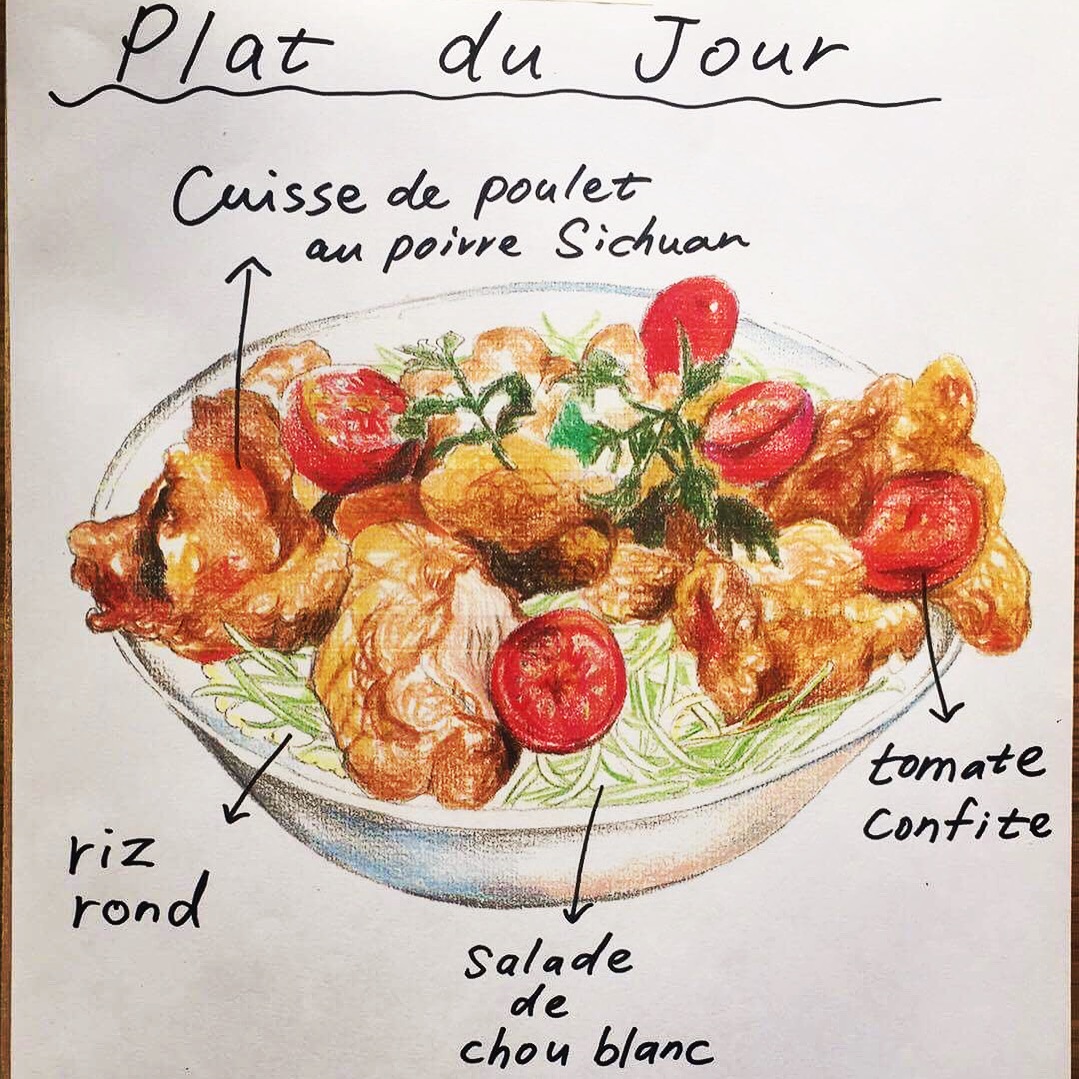 Plat du Jour
Cuisse de poulet
au poivre Sichuan
tomate
confite
riz
rond
salade
de
chou blanc